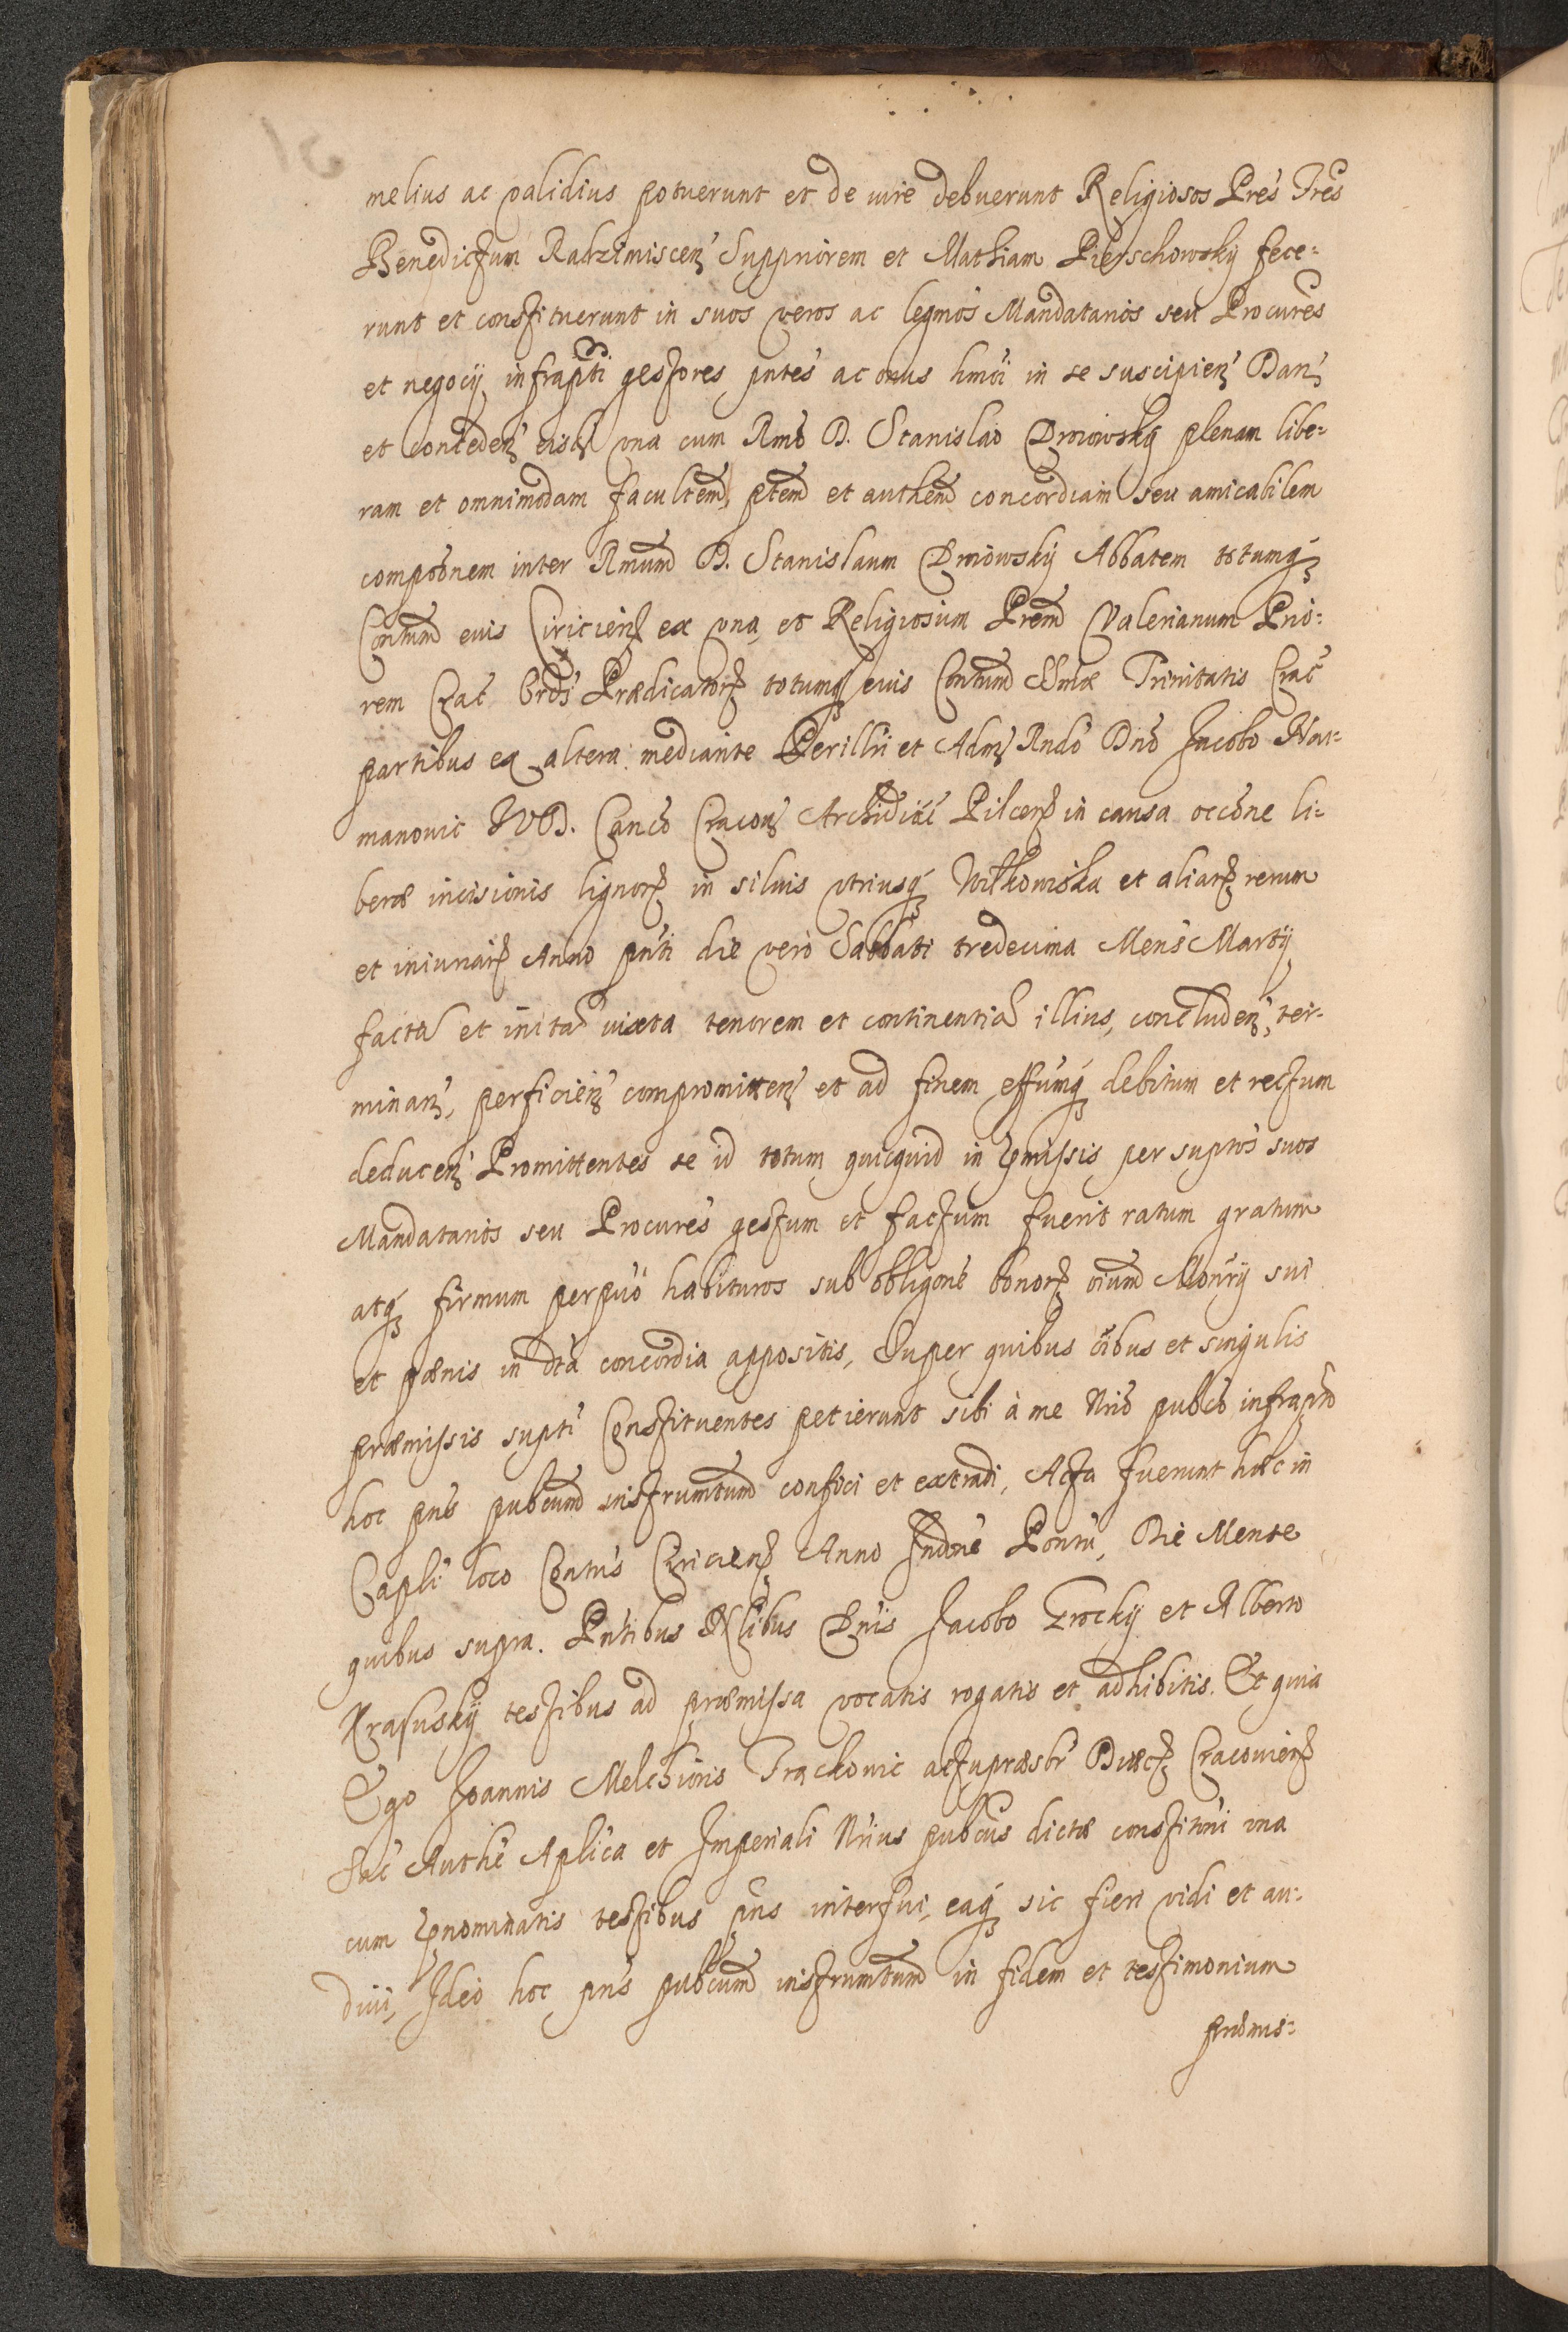 melius ac validius potuerunt et de iure debuerunt Religiosos Pres Fres
Benedictum Radzimiscen Suppriorem et Mathiam Pierschowsky fece-
runt et constituerunt in suos veros ac legmos Mandatarios seu Procures
et negocij infrapti gestores pntes ac onus hmoi in se suscipien Dan
et conceden eisdem vna cum Rmo D. Stanislao Drohiowsky plenam libe-
ram et omnimodam facultem, ptem et authem concordiam seu amicabilem
componem inter Rmum D. Stanislaum Abbatem totumq
Contum euis Ciricien ex vna, et Religiosum Prem Valerianum Prio-
rem Crac Ordis Prædicator totumq euis Contum SSmæ Trinitatis Crac
partibus ex altera: mediante Perillri et Adm Rndo Dno Jacobo
manouic IVD. Canco Cracou Archidiac Pilcen in causa occone li-
beræ incisionis lignor in siluis vtriusq Wilkowiska et aliar rerum
et iniuriar Anno pnti die vero Sabbati tredecima Mens Martij
facta et inita iuxta tenorem et continentia illius, concluden, ter-
minan, perficien compromitten et ad finem effumq debitum et rectum
deducen Promittentes se id totum quicquid in pmissis per suptos suos
Mandatarios seu Procures gestum et factum fuerit ratum gratum
atq firmum perpuo habituros sub obligone bonor oium Monrij sui
et pænis in dta concordia appositis, Super quibus oibus et singulis
præmissis supti Constituentes petierunt sibi à me Nrio pubco infrapto
hoc pns pubcum instrumtum confici et extradi, Acta fuerunt hæc in
Capli loco Contus Ciricien Anno Indone Pontu, Die Mense
quibus supra. Pntibus Nlibus Dnis Jacobo et Alberto
Krasusky testibus ad præmissa vocatis rogatis et adhibitis. Et quia
Ego Joannis Melchioris Diæc Cracouien
Sac Authe Aplica et Imperiali Nrius pubcus dictæ constituni vna
cum pnominatis testibus pns interfui, eaq sic fieri vidi et au-
diui, Ideo hoc pns pubcum instrumtum in fidem et testimonium